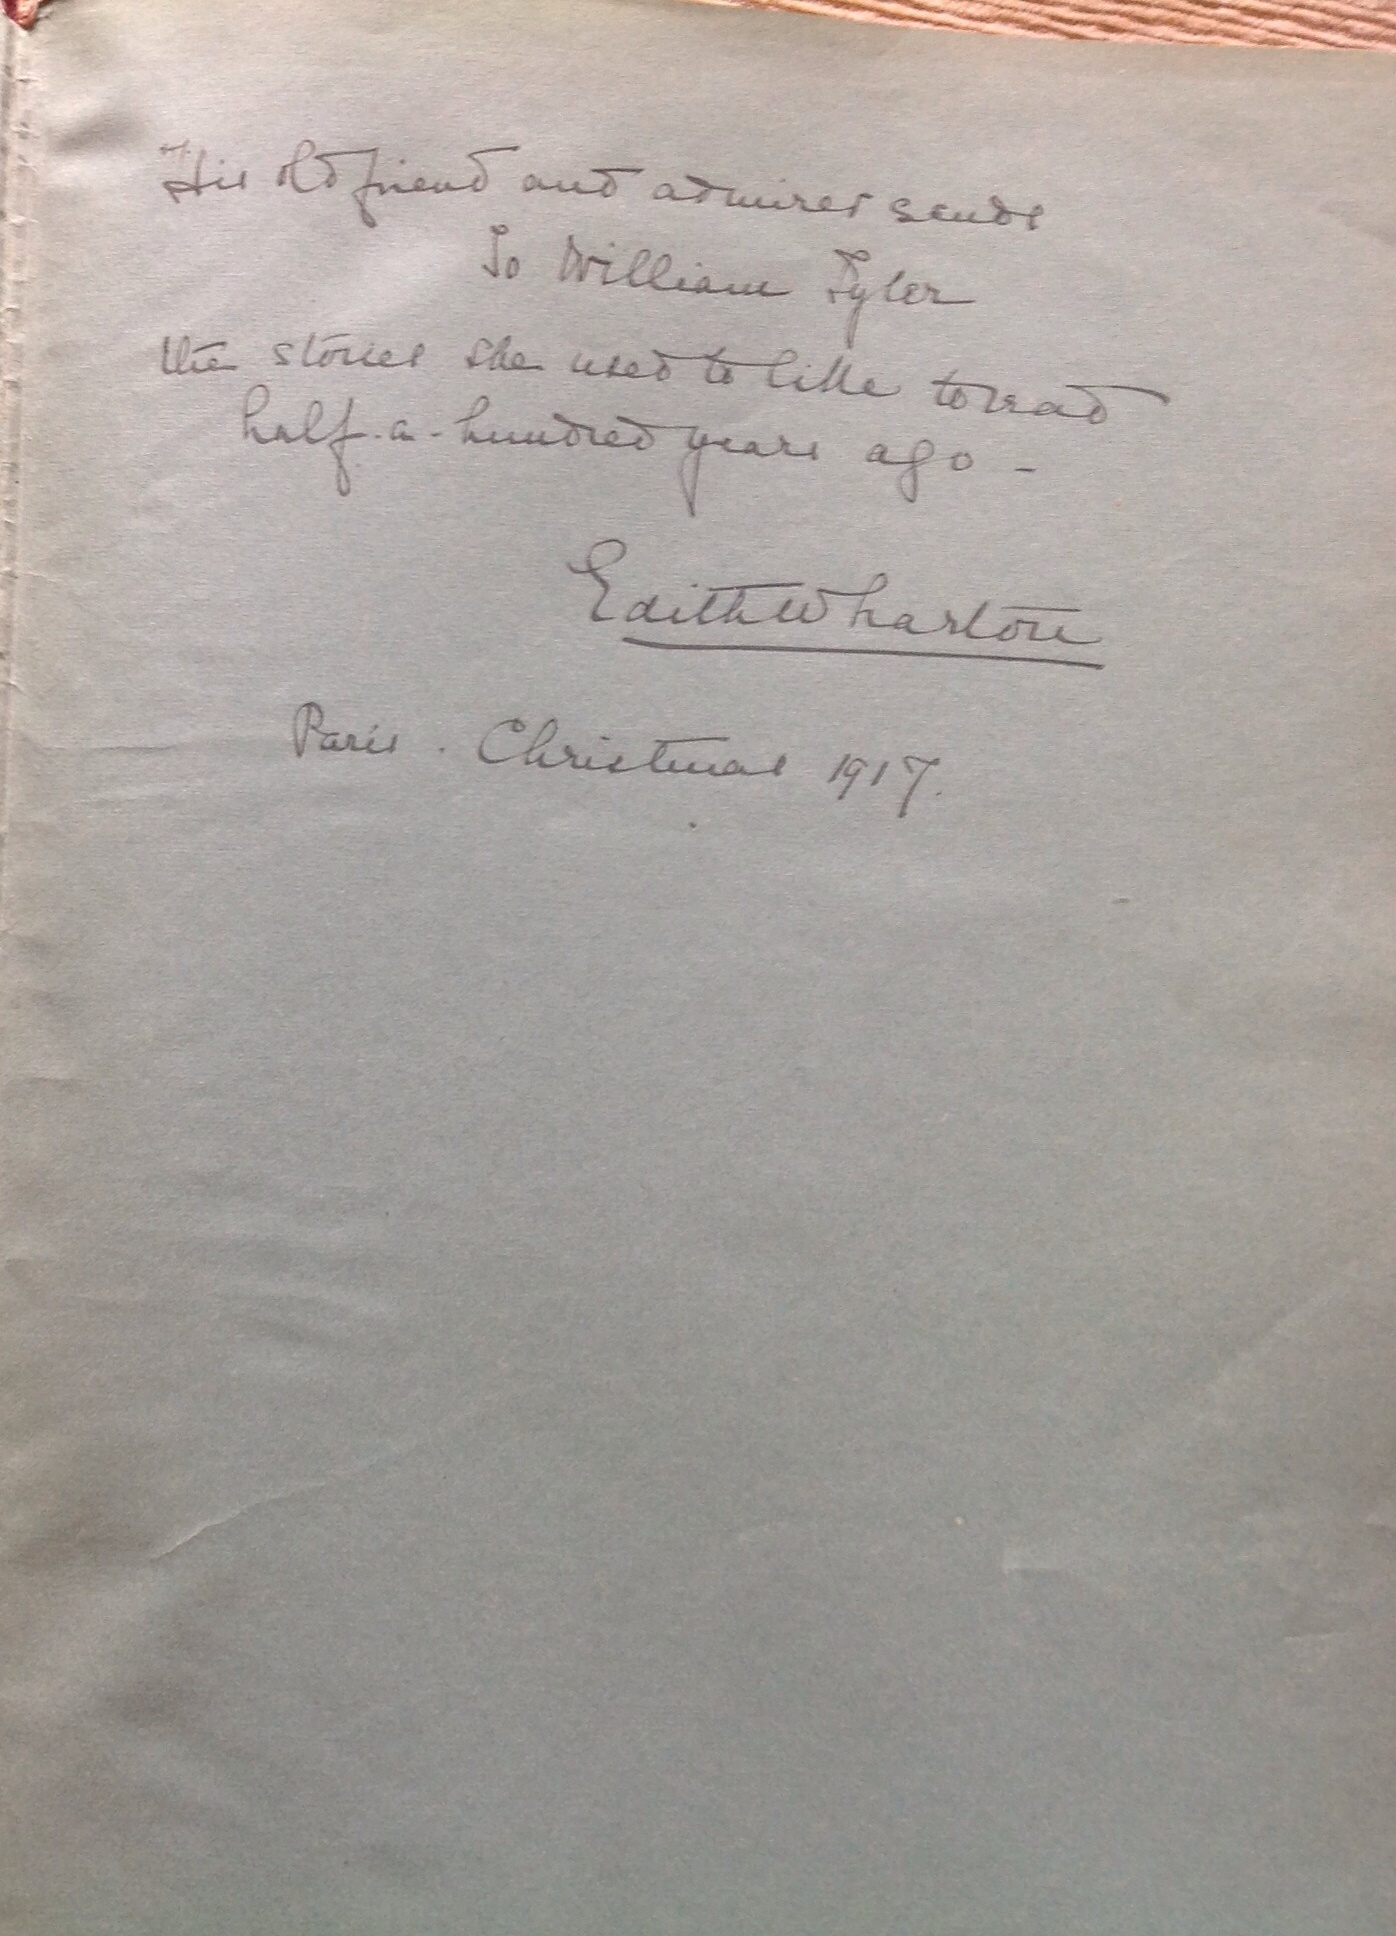 His old friend and admirer sends
To William Tyler
the stories she used to like to read
half-a-hundred years ago -
Edith Wharton
Paris. Christmas 1917.